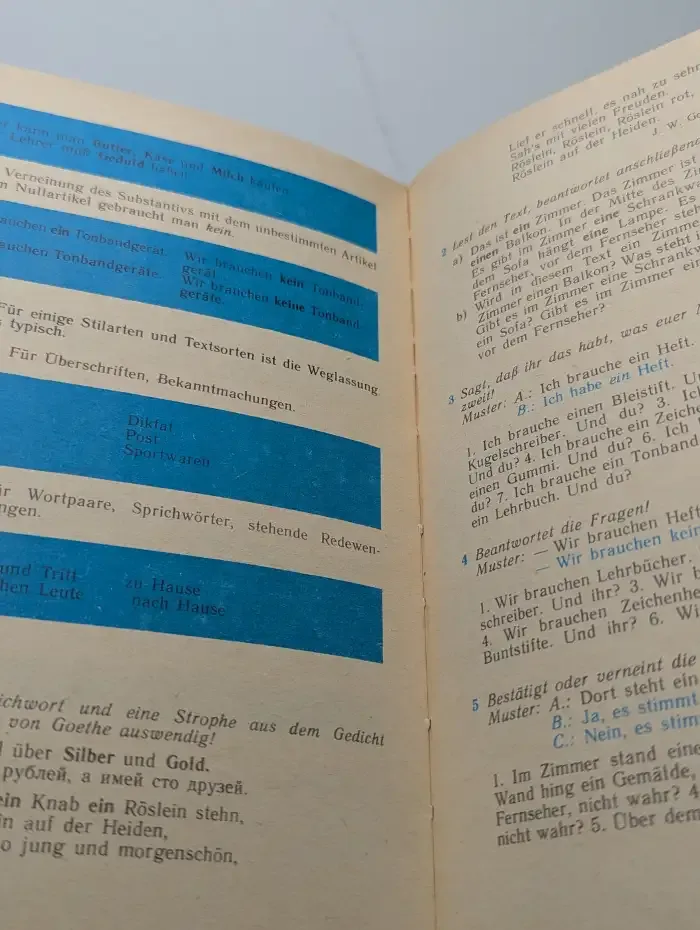 er kann man Butter, Käse und Milch kaufen
Lehrer muß Geduld haben
Verneinung des Substantivs mit dem unbestimmten Artikel
n Nullartikel gebraucht man kein.
auchen ein Tonbandgerät. Wir brauchen kein Tonband-
gerät.
uchen Tonbandgeräte. Wir brauchen keine Tonband-
geräte.
Für einige Stilarten und Textsorten ist die Weglassung
typisch.
Für Überschriften, Bekanntmachungen.
Diktat
Post
Sportwaren
ür Wortpaare, Sprichwörter, stehende Redewen-
ngen.
und Tritt zu Hause
hen Leute nach Hause
ichwort und eine Strophe aus dem Gedicht
von Goethe auswendig!
l über Silber und Gold.
рублей, а имей сто друзей.
ein Knab ein Röslein stehn,
in auf der Heiden,
o jung und morgenschön,
Lief er schnell, es nah zu sehn
Sah's mit vielen Freuden.
Röslein, Röslein, Röslein rot,
Röslein auf der Heiden.
J. W. Go
2 Lest den Text, beantwortet anschließend
a) Das ist ein Zimmer. Das Zimmer ist
einen Balkon. In der Mitte des Zim
Es gibt im Zimmer eine Schrankw
dem Sofa hängt eine Lampe. Es
Fernseher, vor dem Fernseher steh
b) Wird in diesem Text ein Zimme
Zimmer einen Balkon? Was steht i
Gibt es im Zimmer eine Schrankw
ein Sofa? Gibt es im Zimmer ein
vor dem Fernseher?
3 Sagt, daß ihr das habt, was euer N
zweit!
Muster: A.: Ich brauche ein Heft.
B.: Ich habe ein Heft.
1. Ich brauche einen Bleistift. Un
Kugelschreiber. Und du? 3. Ich
Und du? 4. Ich brauche ein Zeiche
einen Gummi. Und du? 6. Ich
du? 7. Ich brauche ein Tonband
ein Lehrbuch. Und du?
4 Beantwortet die Fragen!
Muster: — Wir brauchen Heft
— Wir brauchen kein
1. Wir brauchen Lehrbücher.
schreiber. Und ihr? 3. Wir b
4. Wir brauchen Zeichenhe
Buntstifte. Und ihr? 6. Wi
5 Bestätigt oder verneint die
Muster: A.: Dort steht ein
B.: Ja, es stimmt
C.: Nein, es stim
1. Im Zimmer stand eine
Wand hing ein Gemälde,
Fernseher, nicht wahr? 4
nicht wahr? 5. Über dem